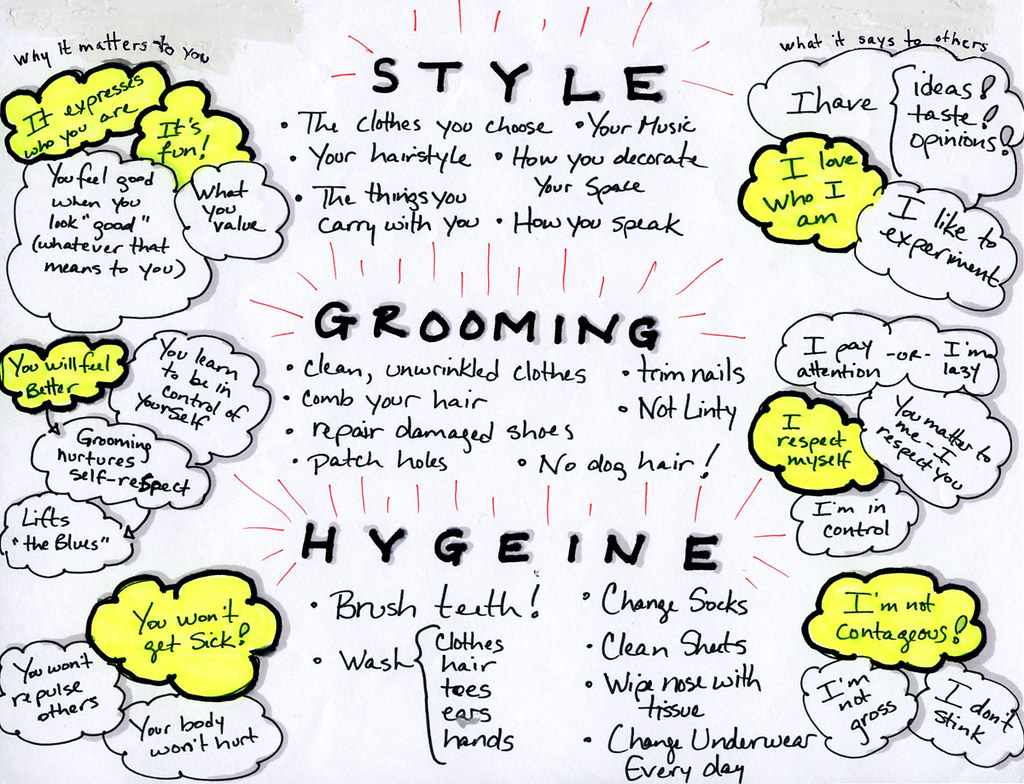 Why it matters to you
It expresses
who you are
It's
fun!
You feel good
when you
look "good"
(whatever that
means to you)
What
you
value
STYLE
• The clothes you choose
• Your hairstyle
• The things you
carry with you
• Your Music
• How you decorate
Your Space
• How you speak
what it says to others
I have { ideas!
taste!
opinions!
I love
who I
am
I like to
experiment
You will feel
Better
You learn
to be in
control of
yourself
Grooming
nurtures
self-respect
Lifts
"the Blues"
GROOMING
• clean, unwrinkled clothes
• comb your hair
• repair damaged shoes
• patch holes
• trim nails
• Not Linty
• No dog hair!
I pay
attention
-OR-
I'm
lazy
I
respect
myself
You matter to
me -- I
respect you
I'm in
control
You won't
get Sick!
You won't
repulse
others
Your body
won't hurt
HYGEINE
• Brush teeth!
• Wash { Clothes
hair
toes
ears
hands
• Change Socks
• Clean Sheets
• Wipe nose with
tissue
• Change Underwear
Every day
I'm not
contageous!
I'm
not
gross
I don't
stink